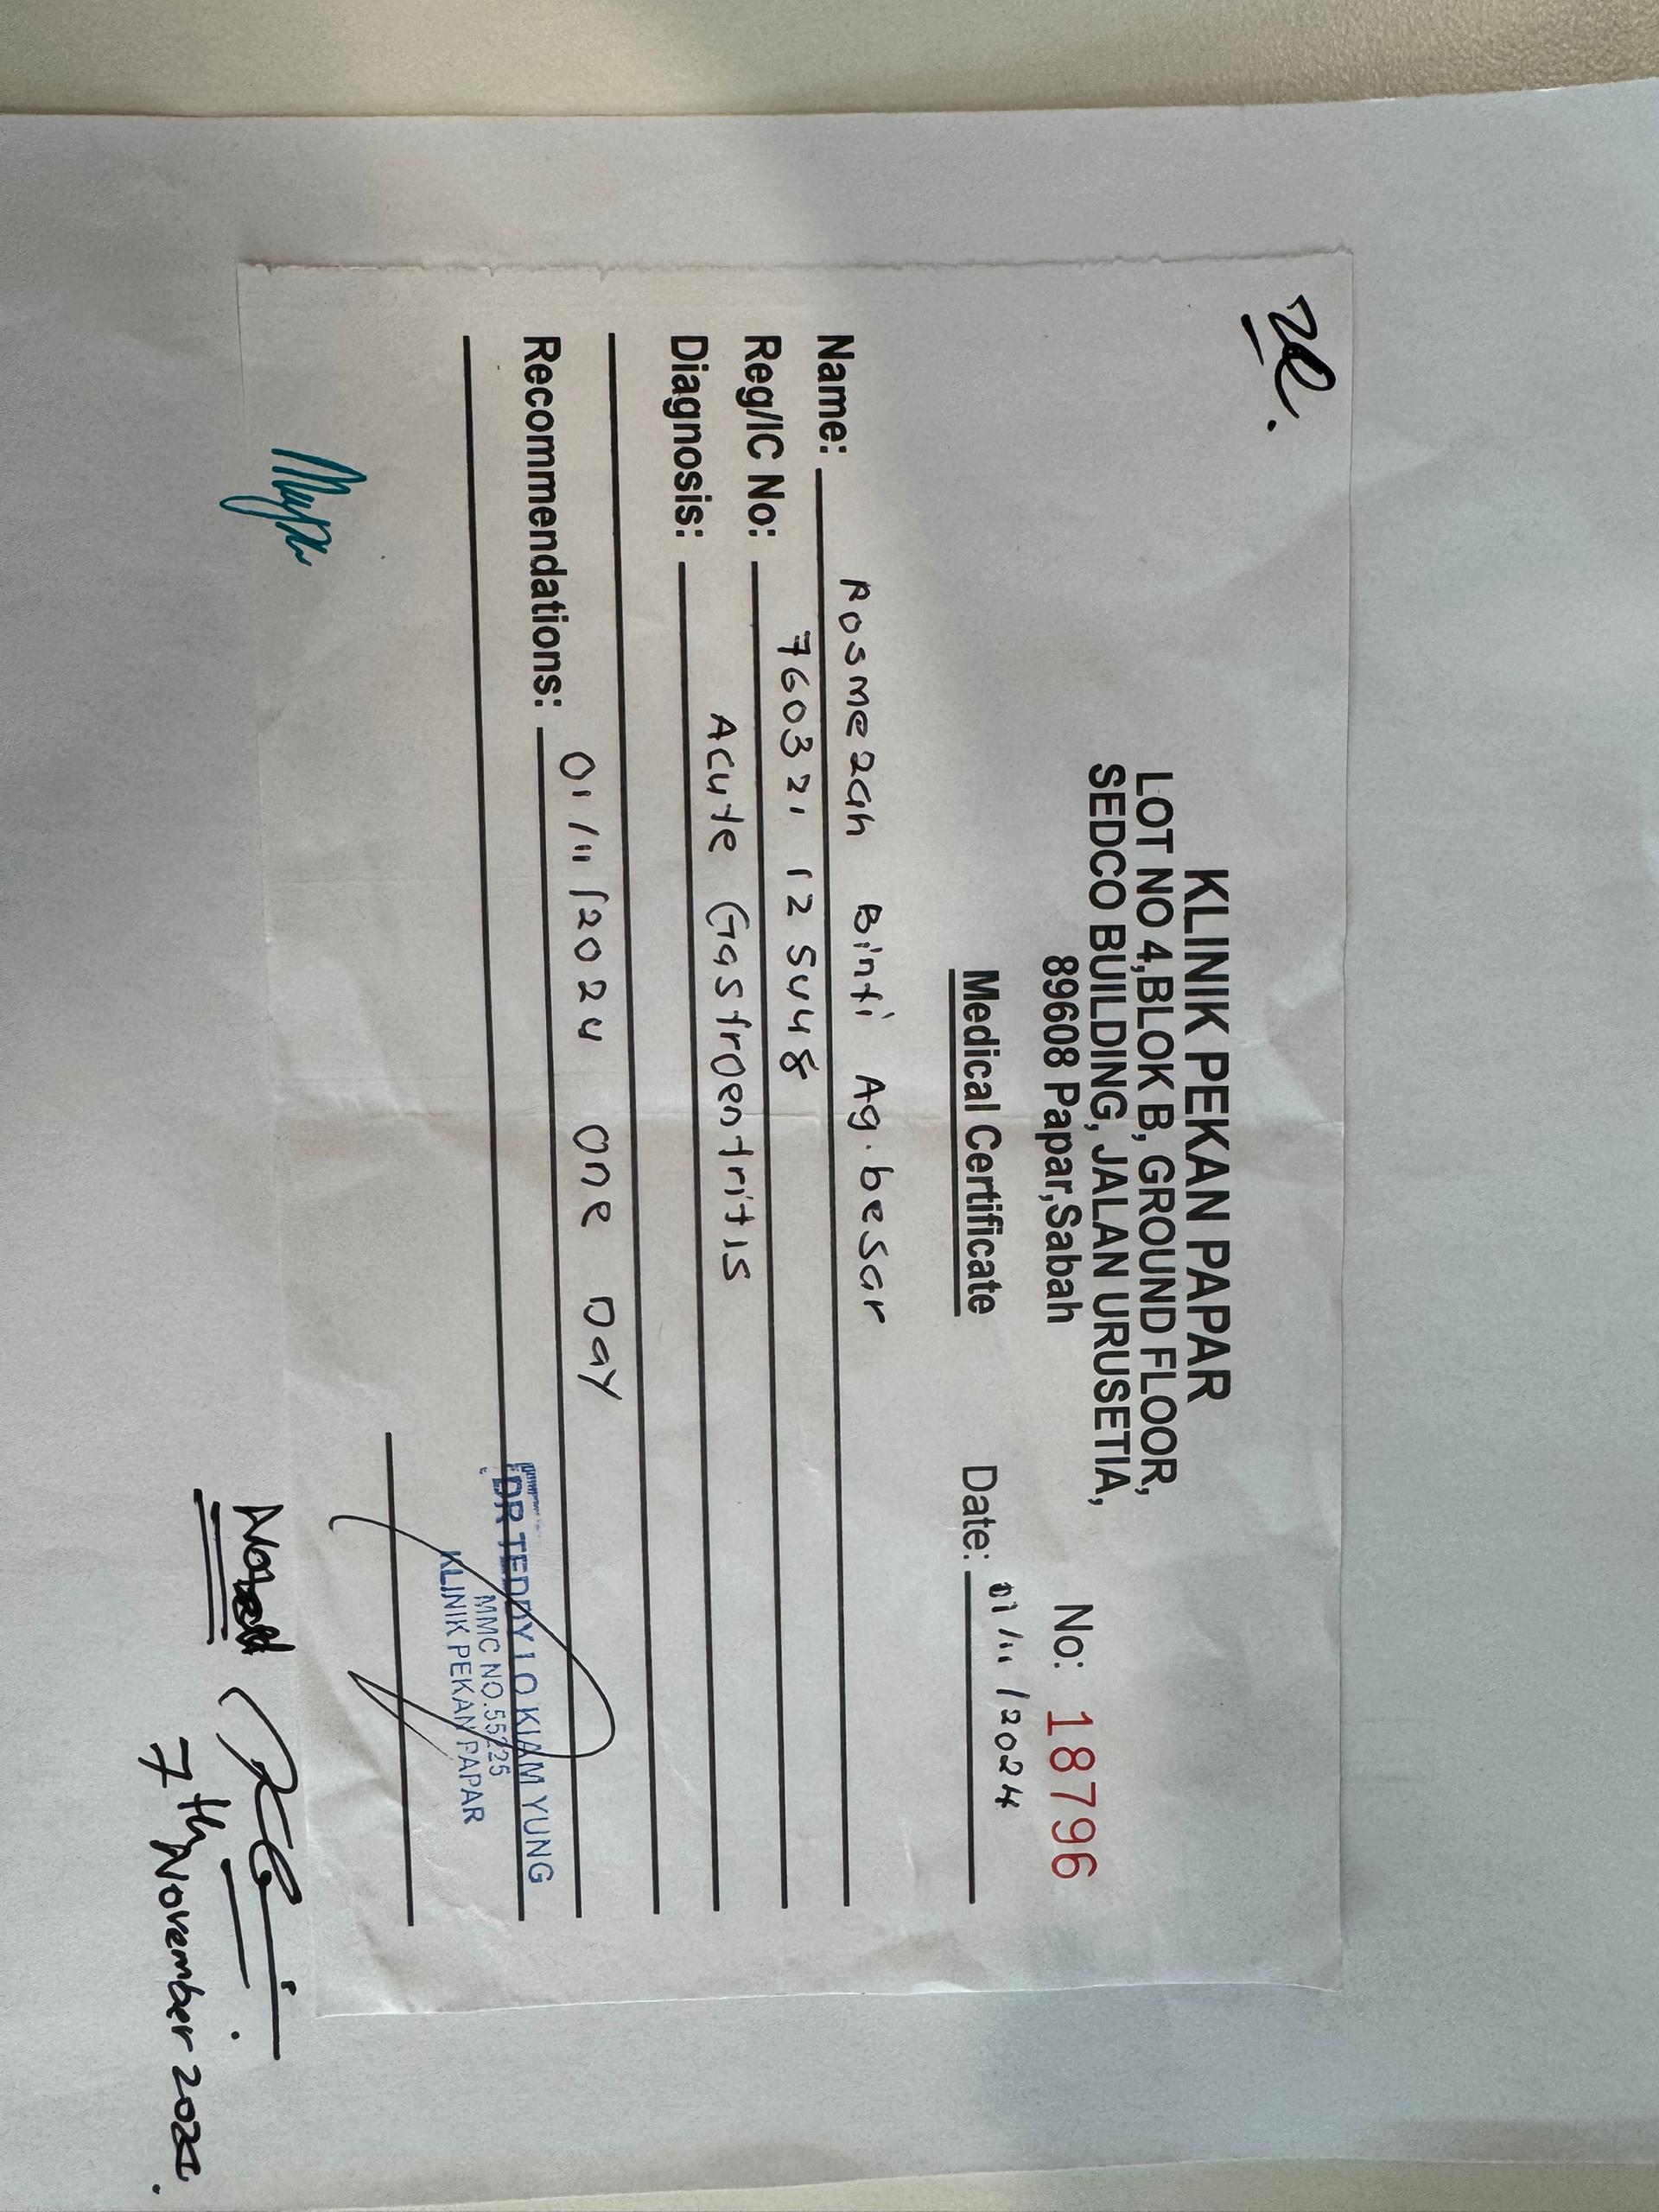 KLINIK PEKAN PAPAR
LOT NO 4,BLOK B, GROUND FLOOR,
SEDCO BUILDING, JALAN URUSETIA,
89608 Papar,Sabah
No: 18796
Medical Certificate
Date: 01/11/2024
Name: Rosmezah Binti Ag. besar
Reg/IC No: 760321 12 5448
Diagnosis: Acute Gastroentritis
Recommendations: 01/11/2024 one Day
DR TEDDY LO KIAM YUNG
MMC NO.55225
KLINIK PEKAN PAPAR
Noted
7th November 2024.